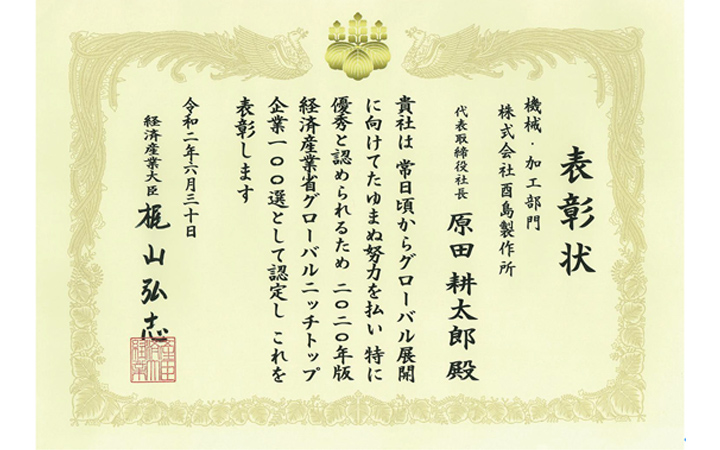 表彰状
機械・加工部門
株式会社酉島製作所
代表取締役社長 原田 耕太郎 殿
貴社は 常日頃からグローバル展開
に向けてたゆまぬ努力を払い 特に
優秀と認められるため 二〇二〇年版
経済産業省グローバルニッチトップ
企業一〇〇選として認定し これを
表彰します
令和二年六月三十日
経済産業大臣 梶山弘志